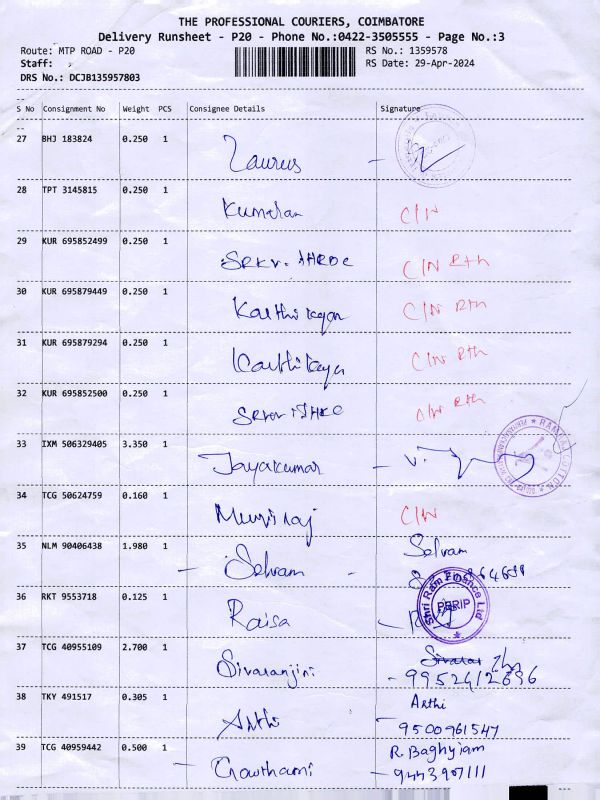 THE PROFESSIONAL COURIERS, COIMBATORE
Delivery Runsheet - P20 - Phone No.:0422-3505555 - Page No.:3
Route: MTP ROAD - P20 RS No.: 1359578
Staff: RS Date: 29-Apr-2024
DRS No.: DCJB135957803
S No Consignment No Weight PCS Consignee Details Signature
27 BHJ 183824 0.250 1 Taurus
28 TPT 3145815 0.250 1 Kumaran C/N
29 KUR 695852499 0.250 1 C/N Rth
30 KUR 695879449 0.250 1 Karthikeyan C/N Rth
31 KUR 695879294 0.250 1 C/N Rth
32 KUR 695852500 0.250 1 Rth
33 IXM 506329405 3.350 1 Jayakumar - V.
RAMRAJ COTTON
34 TCG 50624759 0.160 1 Muniraj C/N
35 NLM 90406438 1.980 1 - Selvam Selvam
36 RKT 9553718 0.125 1 Raisa
Shri Ram Finance Ltd
PERIP
37 TCG 40955109 2.700 1 Sivaranjini
- 9952412696
38 TKY 491517 0.305 1 Arthi Arthi
- 9500961547
39 TCG 40959442 0.500 1 - Gowthami R. Baghyiam
- 9443907111